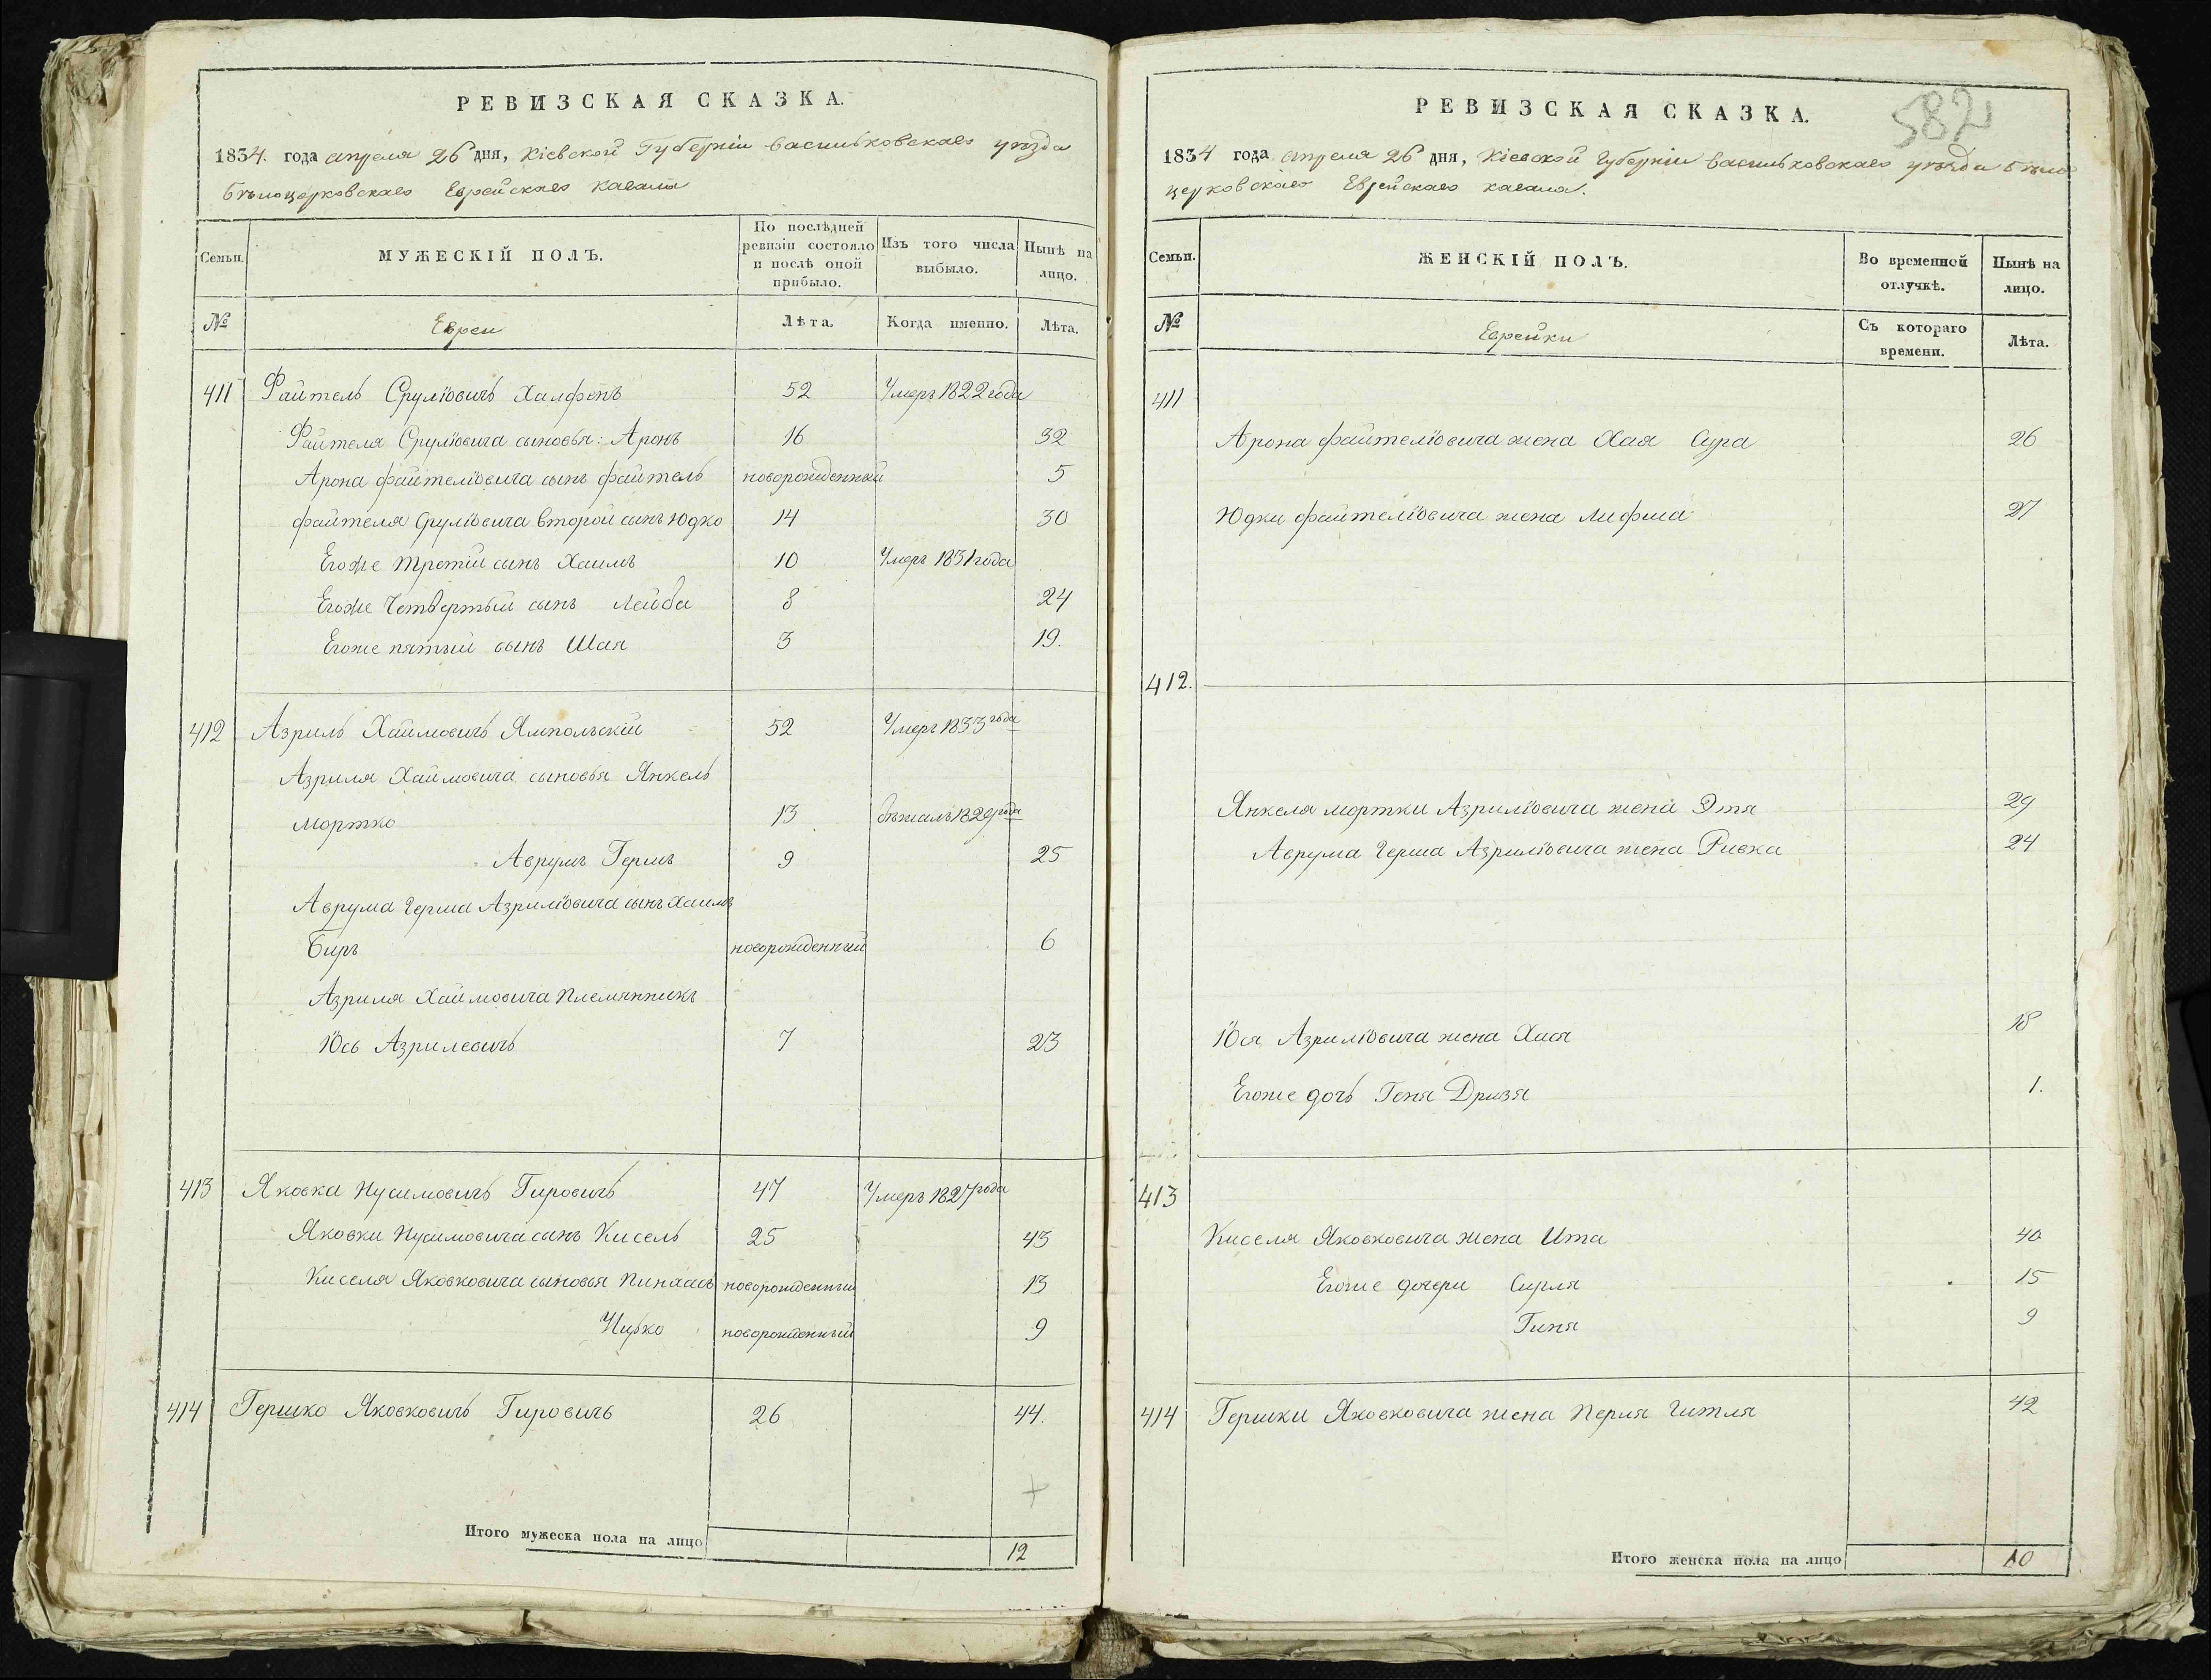 РЕВИЗСКАЯ СКАЗКА.
1834. года апреля 26 дня, Кіевской Губерніи Васильковскаго уѣзда
Бѣлоцерковскаго Еврейскаго Кагала
Семьи.
МУЖЕСКІЙ ПОЛЪ.
По послѣдней ревизіи состояло и послѣ оной прибыло.
Изъ того числа выбыло.
Нынѣ на лицо.
№
Евреи
Лѣта.
Когда именно.
Лѣта.
411 Файтель Сруліовичъ Халфенъ 52 Умеръ 1822 года
Файтеля Сруліовича сыновья: Аронъ 16 32
Арона файтеліовича сынъ файтель новорожденный 5
файтеля Сруліовича второй сынъ Юдко 14 30
Егоже третій сынъ Хаимъ 10 Умеръ 1831 года
Егоже Четвертый сынъ Лейба 8 24
Егоже пятый сынъ Шая 3 19.
412 Азриль Хаймовичъ Ямпольскій 52 Умеръ 1833 года
Азриля Хаймовича сыновья Янкель
Мортко 13 бѣжалъ 1829 года
Аврумъ Гершъ 9 25
Аврума Герша Азриліовича сынъ Хаимъ
Биръ новорожденный 6
Азриля Хаймовича Племянникъ
Іось Азрилевичъ 7 23
413 Яковка Нусимовичъ Гировичъ 47 Умеръ 1827 года
Яковки Нусимовича сынъ Кисель 25 43
Киселя Яковковича сыновья Пинхасъ новорожденный 13
новорожденный 9
414 Гершко Яковковичъ Гировичъ 26 44.
Итого мужеска пола на лицо 12
582
РЕВИЗСКАЯ СКАЗКА.
1834 года апреля 26 дня, Кіевской Губерніи Васильковскаго уѣзда Бѣло
церковскаго Еврейскаго кагала.
Семьи.
ЖЕНСКІЙ ПОЛЪ.
Во временной отлучкѣ.
Нынѣ на лицо.
№
Еврейки
Съ котораго времени.
Лѣта.
411
Арона файтеліовича жена Хая Сура 26
Юдки файтеліовича жена Лифша 27
412.
Янкеля мортки Азриліовича жена Этя 29
Аврума Герша Азриліовича жена Ривка 24
Іося Азриліовича жена Хася 18
Егоже дочь Геня Дризя 1.
413
Киселя Яковковича жена Ита 40
Егоже дочери Сурля 15
Гиня 9
414 Гершки Яковковича жена Перля Гитля 42
Итого женска пола на лицо 10